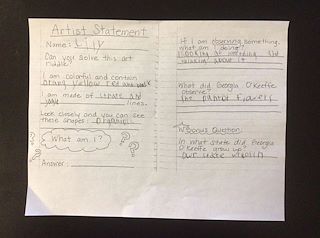 Artist Statement
Name: Lily
Can you solve this art
riddle?
I am colorful and contain
orang yellow red and
I am made of
lines.
Look closely and you can see
these shapes: organic
What am I?
Answer:
If I am observing something,
what am I doing?
looking at
thinking about it
What did Georgia O'Keeffe
observe?
the flowers
Bonus Question:
In what state did Georgia
O'Keeffe grow up?
our state